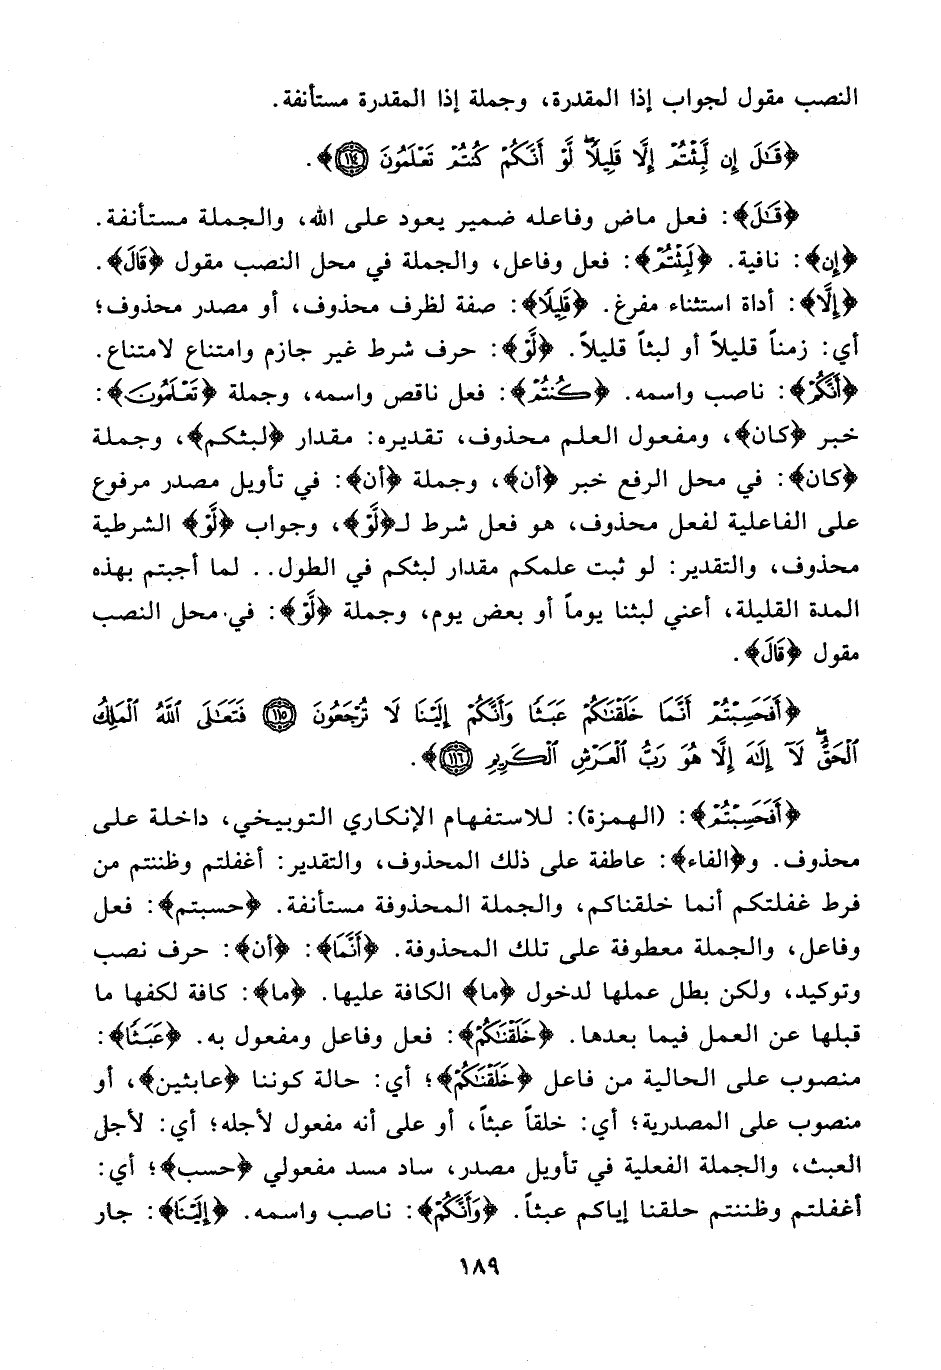 النصب مقول لجواب إذا المقدرة، وجملة إذا المقدرة مستأنفة.
﴿قَٰلَ إِن لَّبِثْتُمْ إِلَّا قَلِيلًا ۖ لَّوْ أَنَّكُمْ كُنتُمْ تَعْلَمُونَ ﴿١١٤﴾﴾.
﴿قَٰلَ﴾: فعل ماض وفاعله ضمير يعود على الله، والجملة مستأنفة.
﴿إِن﴾: نافية. ﴿لَّبِثْتُمْ﴾: فعل وفاعل، والجملة في محل النصب مقول ﴿قَالَ﴾.
﴿إِلَّا﴾: أداة استثناء مفرغ. ﴿قَلِيلًا﴾: صفة لظرف محذوف، أو مصدر محذوف؛
أي: زمناً قليلاً أو لبثاً قليلاً. ﴿لَّوْ﴾: حرف شرط غير جازم وامتناع لامتناع.
﴿أَنَّكُمْ﴾: ناصب واسمه. ﴿كُنتُمْ﴾: فعل ناقص واسمه، وجملة ﴿تَعْلَمُونَ﴾:
خبر ﴿كان﴾، ومفعول العلم محذوف، تقديره: مقدار ﴿لبثكم﴾، وجملة
﴿كان﴾: في محل الرفع خبر ﴿أن﴾، وجملة ﴿أن﴾: في تأويل مصدر مرفوع
على الفاعلية لفعل محذوف، هو فعل شرط لـ﴿لَّوْ﴾، وجواب ﴿لَّوْ﴾ الشرطية
محذوف، والتقدير: لو ثبت علمكم مقدار لبثكم في الطول.. لما أجبتم بهذه
المدة القليلة، أعني لبثنا يوماً أو بعض يوم، وجملة ﴿لَّوْ﴾: في محل النصب
مقول ﴿قَالَ﴾.
﴿أَفَحَسِبْتُمْ أَنَّمَا خَلَقْنَٰكُمْ عَبَثًا وَأَنَّكُمْ إِلَيْنَا لَا تُرْجَعُونَ ﴿١١٥﴾ فَتَعَٰلَى ٱللَّهُ ٱلْمَلِكُ
ٱلْحَقُّ ۖ لَآ إِلَٰهَ إِلَّا هُوَ رَبُّ ٱلْعَرْشِ ٱلْكَرِيمِ ﴿١١٦﴾﴾.
﴿أَفَحَسِبْتُمْ﴾: (الهمزة): للاستفهام الإنكاري التوبيخي، داخلة على
محذوف. و﴿الفاء﴾: عاطفة على ذلك المحذوف، والتقدير: أغفلتم وظننتم من
فرط غفلتكم أنما خلقناكم، والجملة المحذوفة مستأنفة. ﴿حسبتم﴾: فعل
وفاعل، والجملة معطوفة على تلك المحذوفة. ﴿أَنَّمَا﴾: ﴿أن﴾: حرف نصب
وتوكيد، ولكن بطل عملها لدخول ﴿ما﴾ الكافة عليها. ﴿ما﴾: كافة لكفها ما
قبلها عن العمل فيما بعدها. ﴿خَلَقْنَٰكُمْ﴾: فعل وفاعل ومفعول به. ﴿عَبَثًا﴾:
منصوب على الحالية من فاعل ﴿خَلَقْنَٰكُمْ﴾؛ أي: حالة كوننا ﴿عابثين﴾، أو
منصوب على المصدرية؛ أي: خلقاً عبثاً، أو على أنه مفعول لأجله؛ أي: لأجل
العبث، والجملة الفعلية في تأويل مصدر، ساد مسد مفعولي ﴿حسب﴾؛ أي:
أغفلتم وظننتم حلقنا إياكم عبثاً. ﴿وَأَنَّكُمْ﴾: ناصب واسمه. ﴿إِلَيْنَا﴾: جار
١٨٩